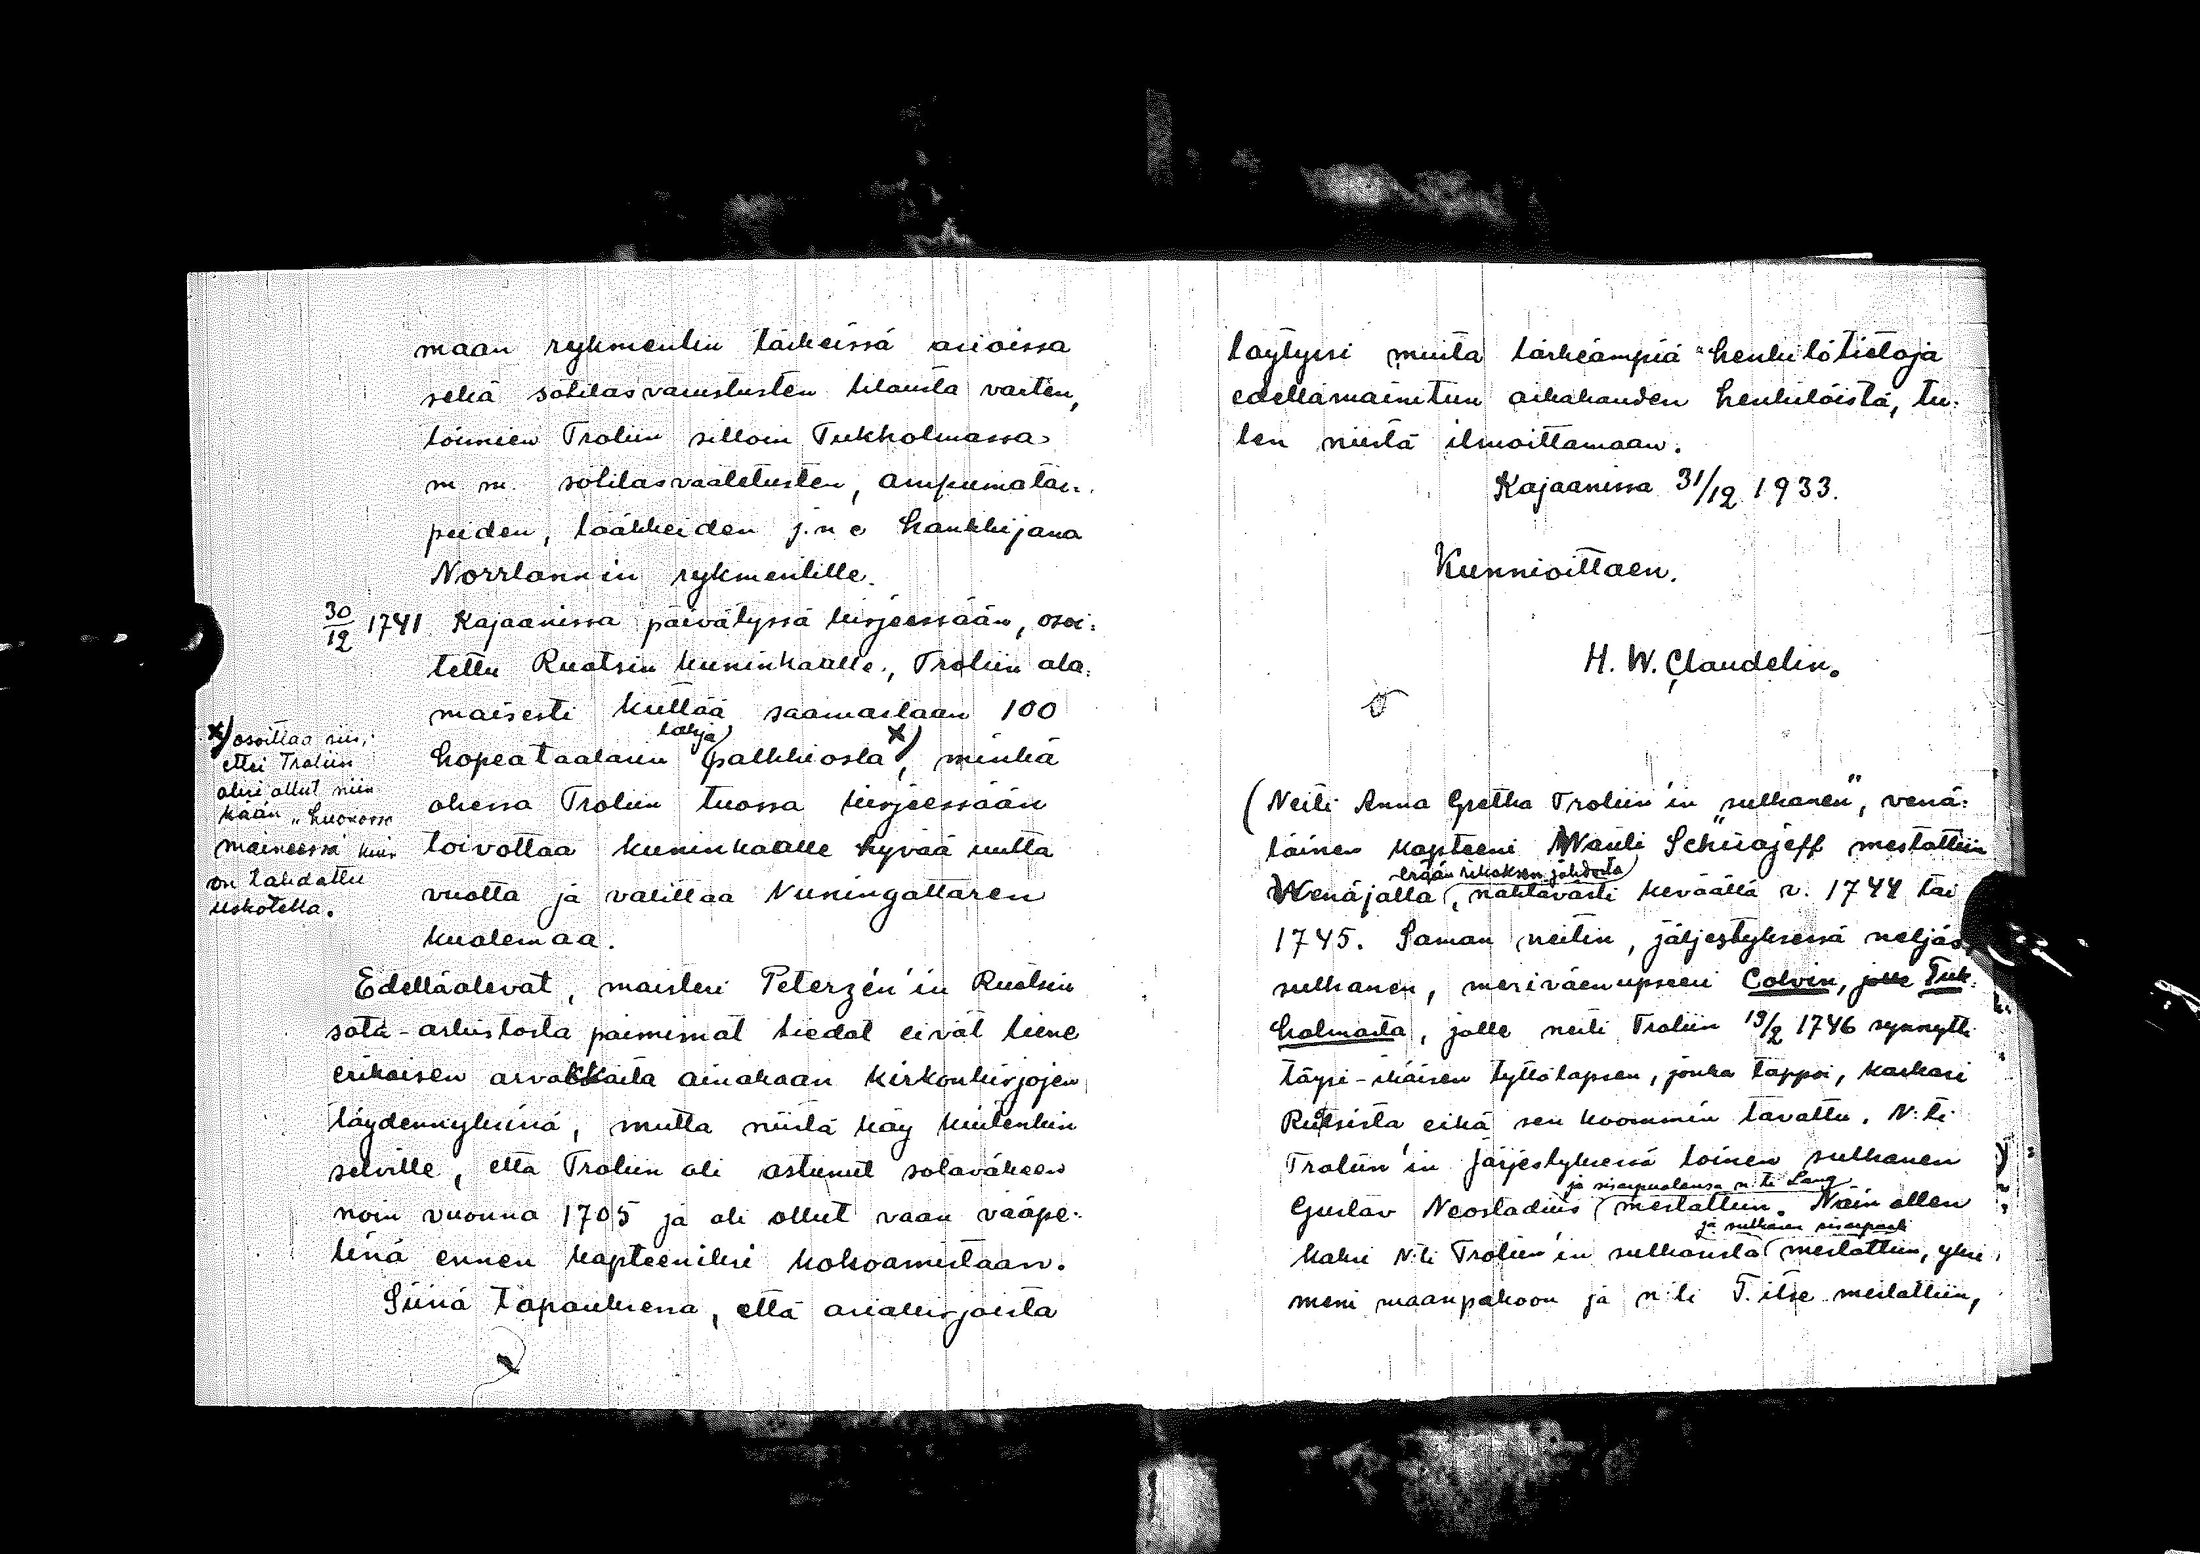 maan rykmentin tärkeissä asioissa
sekä sotilasvarustusten tilausta varten,
toimien Troliin silloin Tukholmassa
m. m. sotilasvaatetusten, ampumatar-
peiden, lääkkeiden j.n.e hankkijana
Norrlannin rykmentille.
30/12 1741 Kajaanissa päivätyssä kirjeessään, osoi-
tettu Ruotsin kuninkaalle, Troliin ala-
maisesti kiittää saamastaan 100
hopeataalarin (lahja) palkkiosta x), minkä
ohessa Troliin tuossa kirjeessään
toivottaa kuninkaalle hyvää uutta
vuotta ja valittaa Kuningattaren
kuolemaa.
x) osoittaa siis,
ettei Troliin
ollut niin
kään „huonossa
maineessa kuin
on tahdottu
uskotella.
Edelläolevat, maisteri Peterzén'in Ruotsin
sota-arkistosta poimimat tiedot eivät liene
erikoisen arvokkaita ainakaan kirkonkirjojen
täydennyksinä, mutta niistä käy kuitenkin
selville, että Troliin oli astunut sotaväkeen
noin vuonna 1705 ja oli ollut vaan vääpe-
linä ennen kapteeniksi kohoamistaan.
Siinä tapauksessa, että asiakirjoista
löytyisi muita tärkeämpiä henkilötietoja
edellämainitun aikakauden henkilöistä, tu-
len niistä ilmoittamaan.
Kajaanissa 31/12 1933.
Kunnioittaen.
H. W. Claudelin.
(Neiti Anna Gretha Troliin'in „sulhanen", venä-
läinen kapteeni Wauli Schirajeff mestattiin
erään rikoksen johdosta)
Wenäjällä (, nähtävästi keväällä v. 1744 tai
1745. Saman neitin, järjestyksessä neljäs
sulhanen, meriväenupseeri Colvin, jolle Tuk-
holmasta, jolle neiti Troliin 19/2 1746 synnytti
täysi-ikäisen tyttölapsen, jonka tappoi, karkasi
Ruotsista eikä sen koommin tavattu. N:ti
Troliin'in järjestyksessä toinen sulhanen
ja sisarpuolensa n:ti Lang
Gustav Neostadius (mestattiin. Näin ollen
ja sulhasen sisarpuoli
kaksi N:ti Troliin'in sulhasta (mestattiin, yksi
meni maanpakoon ja n:ti T. itse mestattiin,